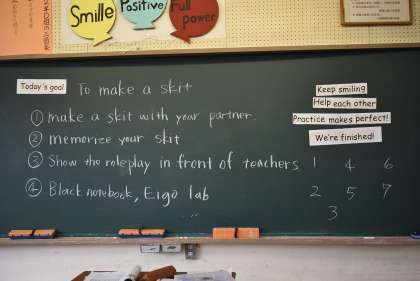 Smille
Positive
Full power
Today's goal
To make a skit
① make a skit with your partner
② memorize your skit
③ Show the roleplay in front of teachers
④ Black notebook, Eigo lab
Keep smiling
Help each other
Practice makes perfect!
We're finished!
1 4 6
2 5 7
3